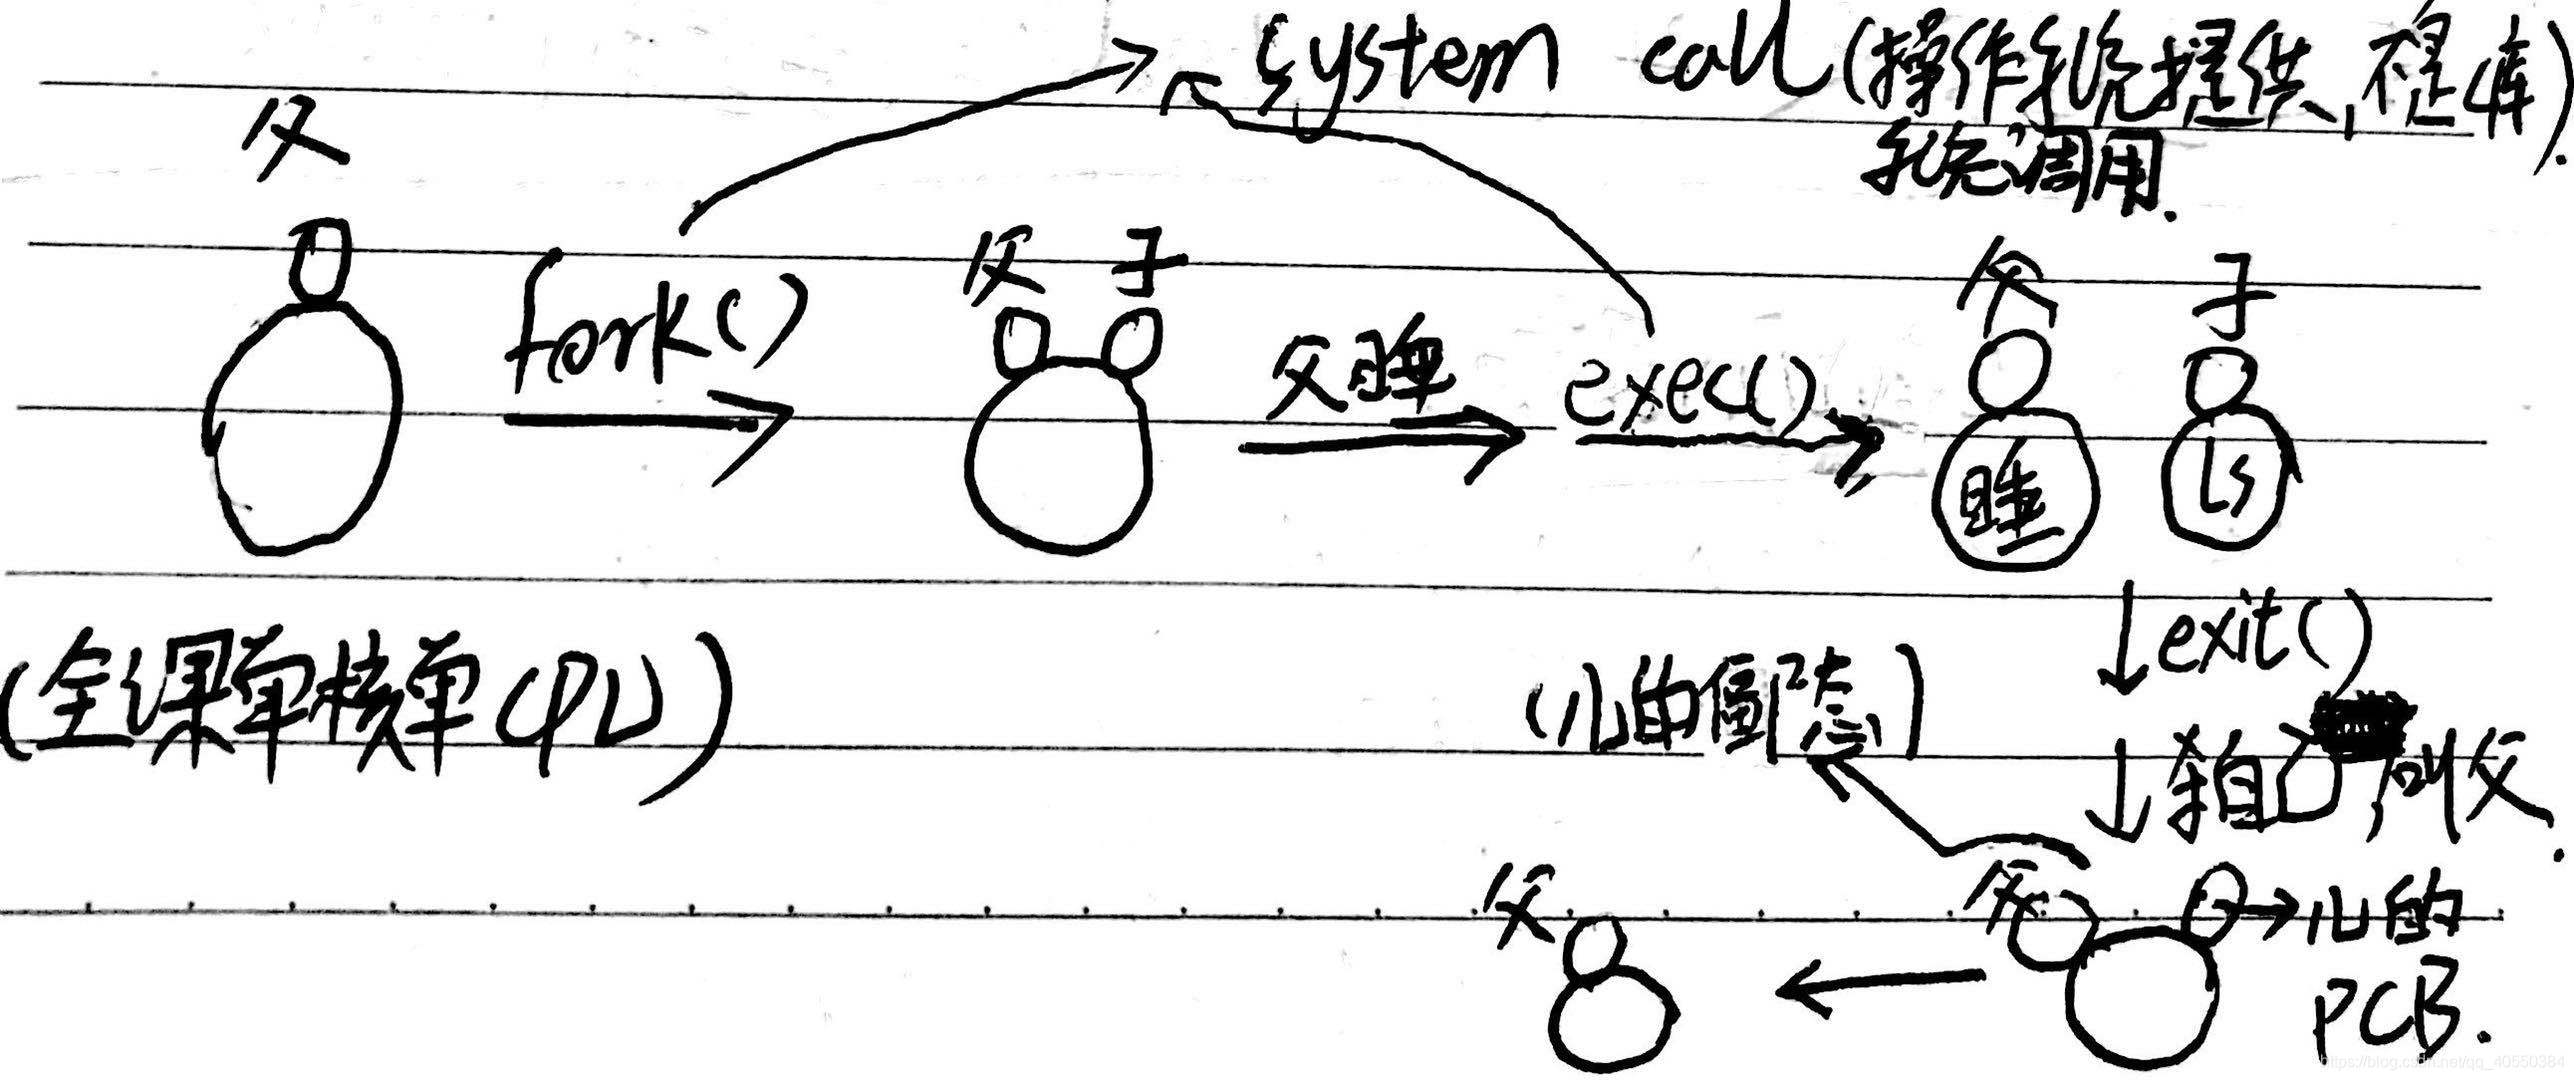 system call (操作系统提供,不是库).
系统调用.
父
父 子
父 子
fork()
父睡
exec()
睡
ls
exit()
(全课单核单CPU)
(儿的僵尸态)
杀自己,叫父.
父
父
儿的
PCB.
https://blog.csdn.net/qq_40550384